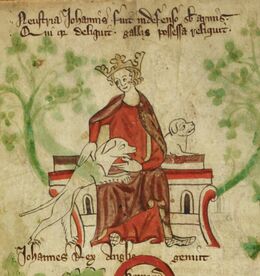 Neustria Johannis fuit indefenso sub armis
Qui quia deliquit gallis possessa reliquit
Johannes Rex Anglie genuit